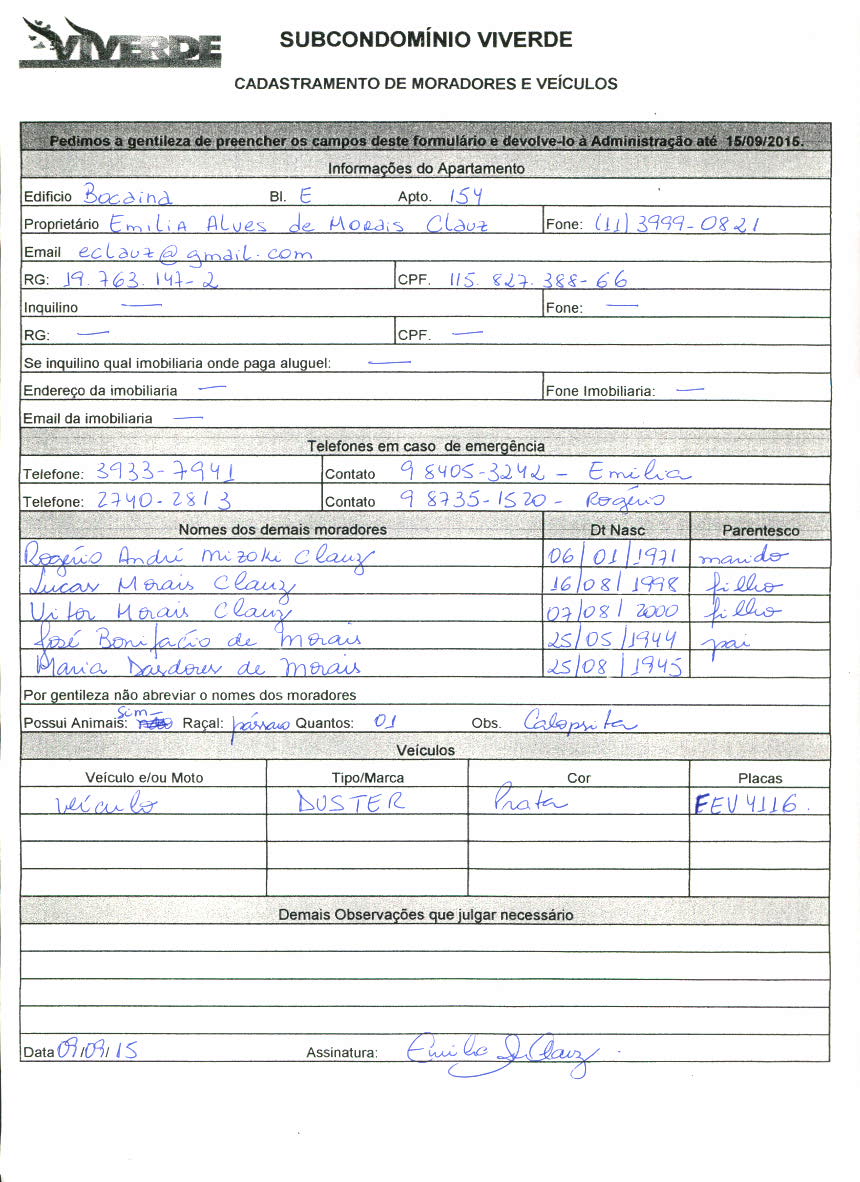 VIVERDE
SUBCONDOMÍNIO VIVERDE
CADASTRAMENTO DE MORADORES E VEÍCULOS
Pedimos a gentileza de preencher os campos deste formulário e devolve-lo à Administração até 15/09/2015.
Informações do Apartamento
Edificio Bocaina Bl. E Apto. 154
Proprietário Emilia Alves de Morais Clauz Fone: (11) 3999-0821
Email eclauz@gmail.com
RG: 19.763.147-2 CPF. 115.827.388-66
Inquilino — Fone: —
RG: — CPF. —
Se inquilino qual imobiliaria onde paga aluguel: —
Endereço da imobiliaria — Fone Imobiliaria: —
Email da imobiliaria —
Telefones em caso de emergência
Telefone: 3933-7941 Contato 9 8405-3242 - Emilia
Telefone: 2740-2813 Contato 9 8735-1520 - Rogério
Nomes dos demais moradores Dt Nasc Parentesco
Rogério André Mizoki Clauz 06/01/1971 marido
Lucas Morais Clauz 16/08/1998 filho
Vitor Morais Clauz 07/08/2000 filho
José Bonifacio de Morais 25/05/1944 pai
Maria Dasdores de Morais 25/08/1945
Por gentileza não abreviar o nomes dos moradores
Possui Animais: Sim Raçal: pássaro Quantos: 01 Obs. Calopsita
Veículos
Veículo e/ou Moto Tipo/Marca Cor Placas
veículo DUSTER Prata FEV4116.
Demais Observações que julgar necessário
Data 09/09/15 Assinatura: Emilia Clauz